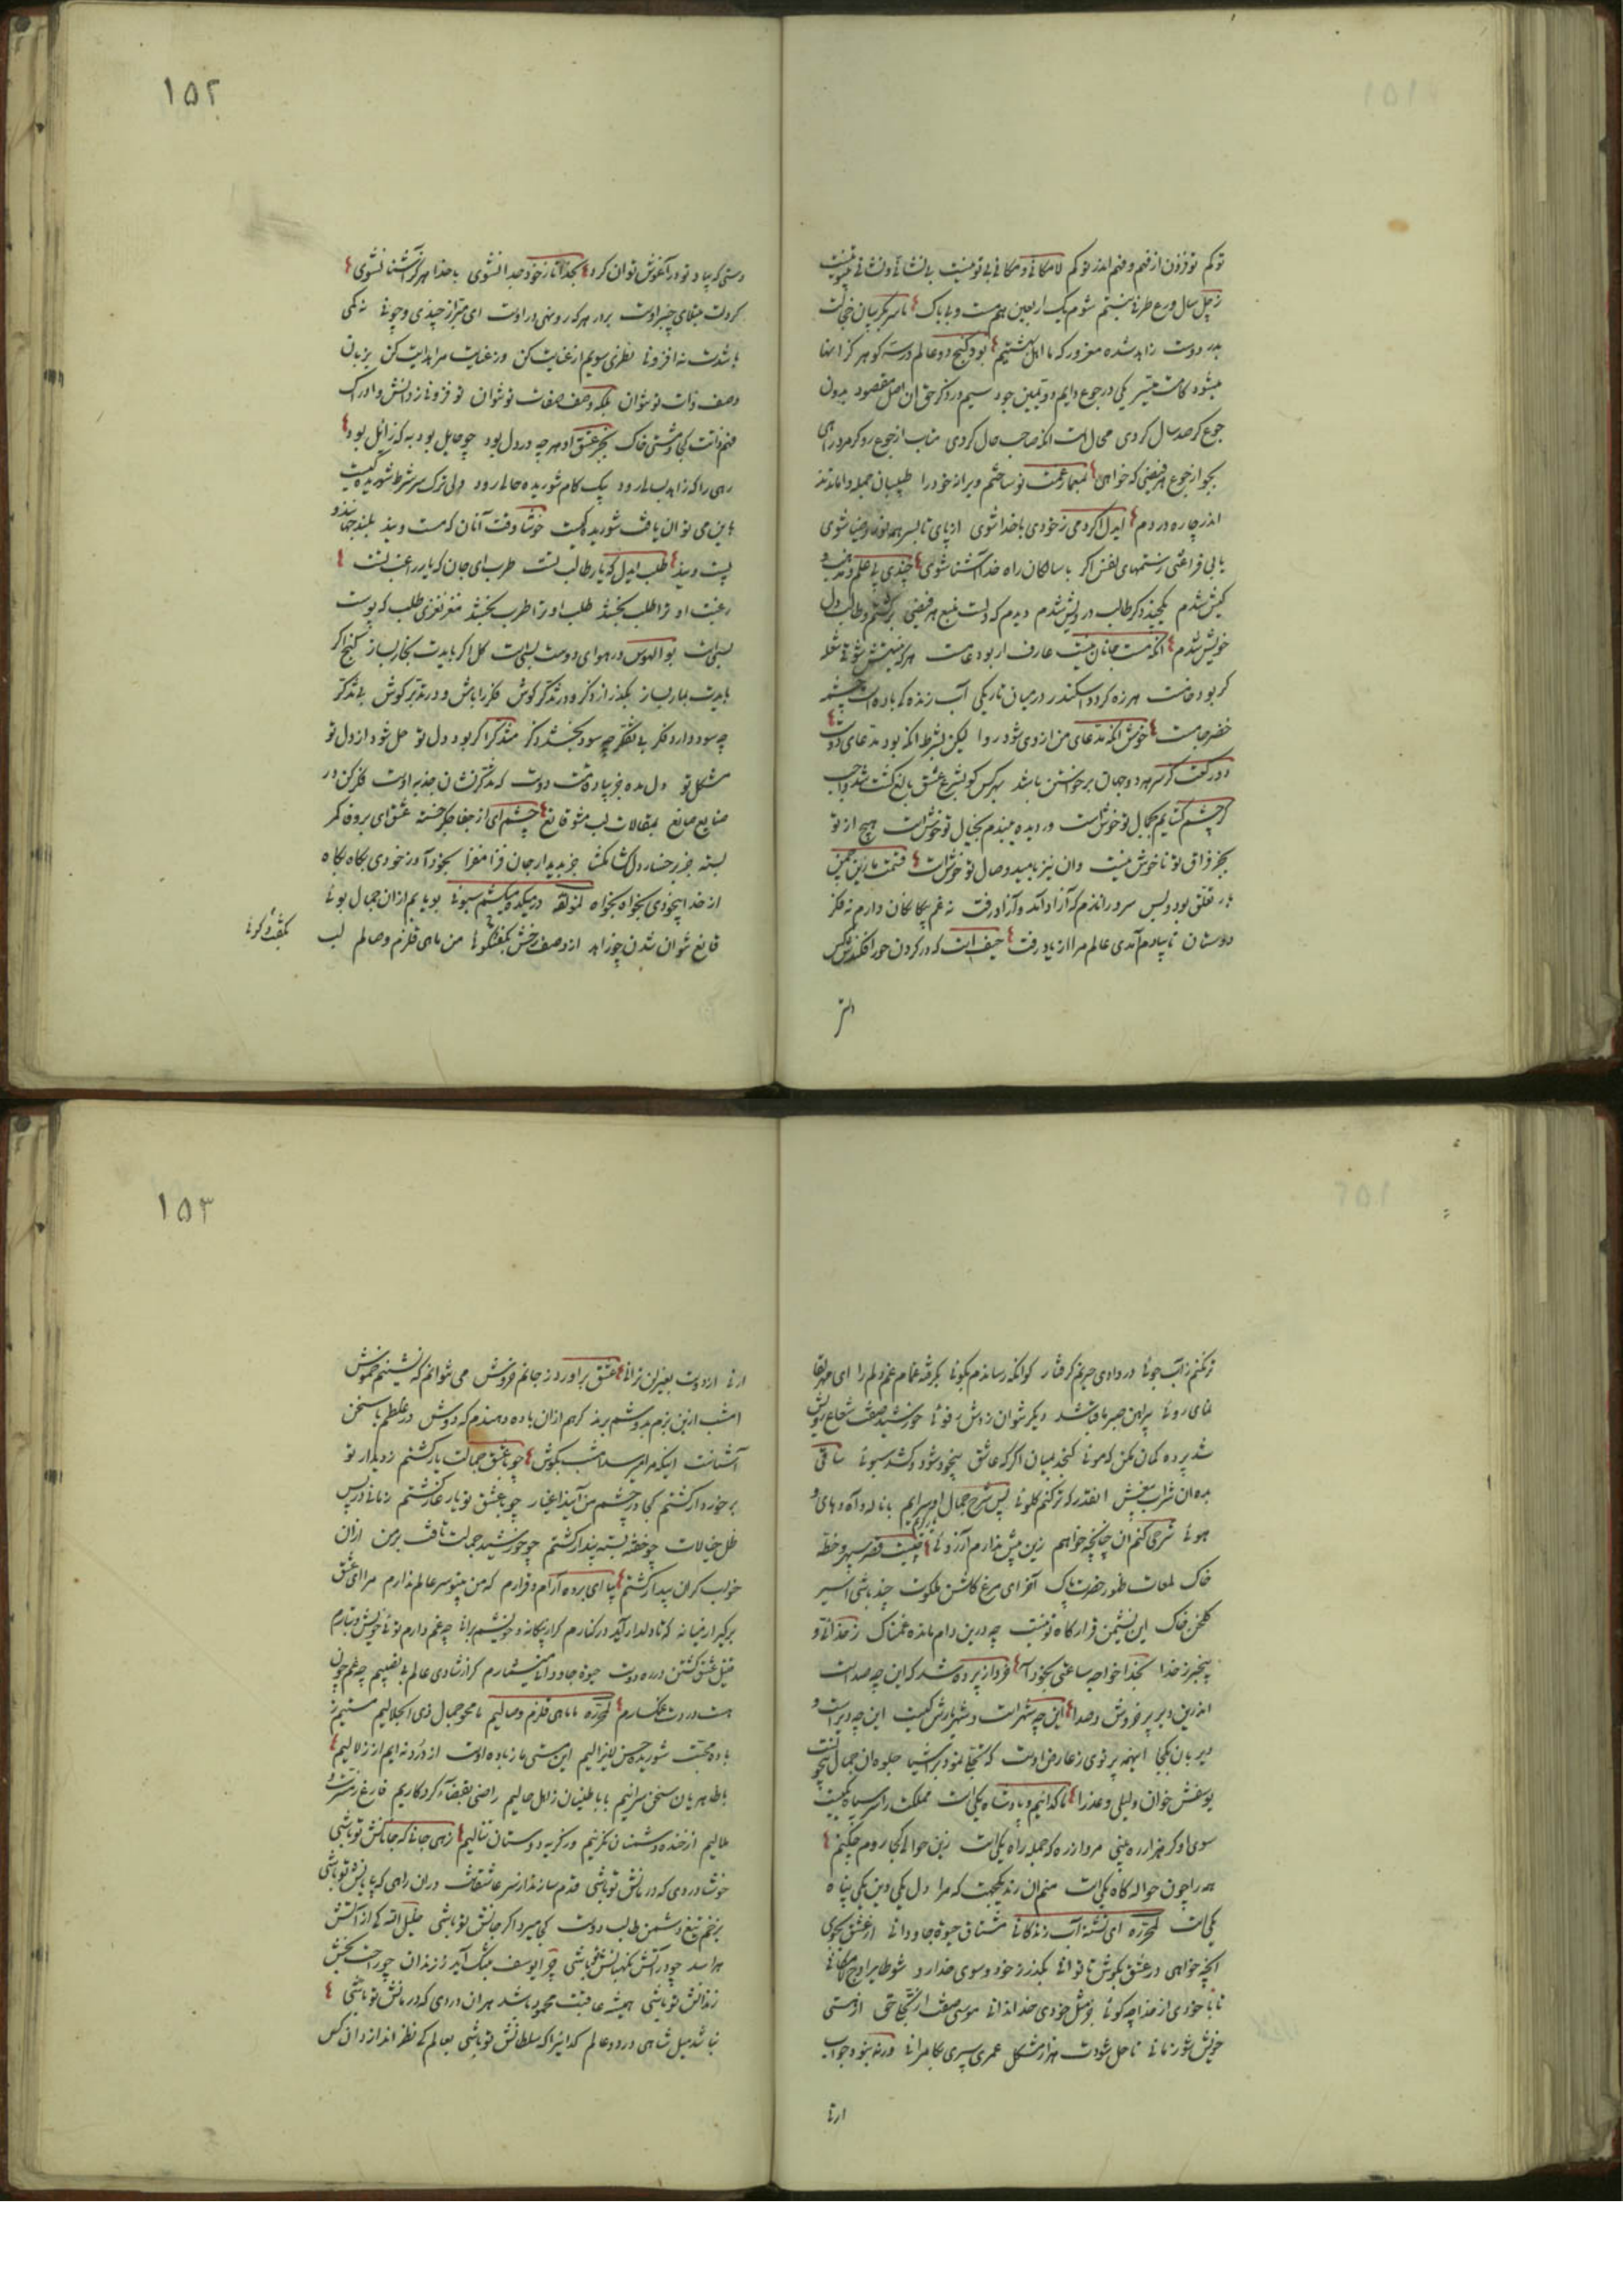 توکم توفزون از فهم و فهم اندر توکم لامکانی و مکانی بی تو نیست بی نشانی و نشانی
زچل سال ورع طرفی نبستم شوم یک اربعین هم مست و بی باک تا سر بگریبان خجالت
بدر دوست زاهد شده مغرور که ما اهل بهشتیم بود گنج دو عالم در سه گوهر کز اینها
میشود کامت میسر یکی در جوع دایم
جوع گر صد سال کردی محال است آنکه صاحب حال گردی متاب از جوع رو گر مرد راهی
بجو از جوع هر فیضی که خواهی بمعمار غمت نو ساختم ویرانه خود را طبیبان جمله واماندند
اندر چاره دردم ایدل اگر دمی ز خودی با خدا شوی از پای تا بسر همه نور و ضیا شوی
یابی فراغتی ز ستمهای نفس اگر با سالکان راه خدا آشنا شوی چندی پی علم و مذهب و
کیش شدم یکچند دگر طالب درویش شدم دیدم که دلست منبع هر فیضی برگشتم و طالب دل
خویش شدم آنکه مست جانان نیست عارف ار بود عامست
گر بود خامست هرزه گردد اسکندر در میان تاریکی آب زنده گی باده است چشمه
خضر جامست خوش آنکه مدعای من از وی شود روا لیکن بشرط آنکه بود مدعای دوست
گر چشم گشایم بجمال تو خوشست ور دیده ببندم بخیال تو خوشست هیچ از تو
بجز فراق تو ناخوش نیست وان نیز بامید وصال تو خوشست قسمت ما زین چمن
بار تعلق بود ولیس سرو را نازم که آزاد آمد و آزاد رفت نه غم بیگانگان دارم نه فکر
دوستان تا بیادم آمدی عالم مرا از یاد رفت حیف است که در گردن حور افکندش کس
۱۵۲
دستی که بیاد تو در آغوش توان کرد بخدا تا ز خود جدا نشوی با خدا هرگز آشنا نشوی
گر دلت مبتلای چنبر اوست بر در هر که رو نهی در اوست ای مبرا ز چندی و چونی نه کمی
باشدت نه افزونی نظری سویم از عنایت کن وز عنایت مرا هدایت کن بزبان
وصف ذات تو نتوان بلکه وصف صفات تو نتوان تو فزونی ز دانش و ادراک
فهم ذاتت کجا و مشتی خاک بجز عشق او هر چه در دل بود چو حایل بود به که زایل بود
رهی را که زاهد بسالی رود بیک گام شوریده حالی رود ولی ترک سر شرط شوریده گیست
باین می توان یافت شوریده کیست خوشا وقت آنان که مست ویند
پست ویند طلب ایدل که یار طالب تست طرب ای جان که یار راغب تست
رغبت او ترا طلب بخشد طلب او ترا طرب بخشد مغز نغزی طلب که پوست
بسی است بوالهوس در هوای دوست بسی است گل اگر بایدت بخار بساز گنج اگر
بایدت بمار بساز بگذر از ذکر و در تذکر کوش فکر را باش و در تدبر کوش بی تذکر
چه سود دارد ذکر بی تفکر چه سود بخشد فکر متذکر اگر بود دل تو حل شود از دل تو
مشکل تو دل مده جز بیاد حضرت دوست که تذکر نشان جذبه اوست فکر کن در
صنایع صانع بمقالات لب مشو قانع چشم ای از جفا جگر خسته عشق ای بر وفا کمر
بسته جز برخسار دل گشا مگشا جز بدیدار جان فزا مفزا بخود آ ور نخودی بگاه بگاه
از خدا بیخودی بخواه بخواه لمؤلفه در میکده میکشم سبوئی بو یابم از آن جمال بوئی
قانع نتوان شدن چو زاهد از وصف رخش بگفتگوئی من ماهی قلزم وصالم لب
تر نکنم ز آب جوئی در وادی حیرتم گرفتار کو آنکه رساندم بکوئی بگرفته تمام غم دلم را ای مهر لقا
نمای روئی پیراهن صبر ما قبا شد دیگر نتوان زدش رفوئی خورشید صفت شعاع رویش
شد پرده گمان مکن که موئی گنجد بمیان اگر که عاشق بیخود شود و کشد سبوئی ساقی
بده آن شراب بیغش آنقدر که تر کنم گلوئی پس شرح جمال او سرایم با ناله و آه و های و
هوئی شرحی کنم آن چنانچه خواهم زین پیش ندارم آرزوئی چیست قصر سپهر و خطه
خاک لمعات ظهور حضرت پاک آخر ای مرغ گلشن ملکوت چند باشی اسیر
گلخن خاک این نشیمن قرارگاه تو نیست چه درین دام مانده غمناک ز خدائی و
بیخبر ز خدا بخدا خواجه ساعتی بخود آ فرد از پرده شد که این چه صداست
اندرین دیر پر خروش و صدا این چه شهر است و شهریارش کیست این چه دیر است و
دیربان بکجا اینهمه پرتوی ز عارض اوست که تجلی نمود بر اشیا جلوه آن جمال
یوسفش خوان و لیلی و عذرا ما گدائیم و پادشاه یکیست مملکت را سر سپاه یکیست
سوی او گر هزار ره بینی مرو از ره که جمله راه یکیست زین حوالی کجا روم چکنم
همه را چون حواله گاه یکیست منم آن رند یکجهت که مرا دل یکی دین یکی پناه
یکیست لمحرره ای تشنه آب زندگانی مشتاق حیوة جاودانی از عشق بجوی
آنچه خواهی در عشق بکوش تا توانی بگذر ز خود و سوی خدا رو شو طایر اوج لامکانی
تا با خودی از خدا چه گوئی بی خودی خدا ندانی موسی صفت ار تجلی حق از هستی
خویش شو زمانی تا حل شودت هزار مشکل عمری سپری بکامرانی ورنه بنود جواب
ارنی
۱۵۳
ارنی از دوست بغیر لن ترانی عشق برآورد ز جانم خروش می نتوانم که نشینم خموش
امشب ازین بزم بدوشم برند گرهم از آن باده دهندم که دوش در غلطم یا سخن
آشناست اینکه مرا میرسد امشب بگوش چو با عشق جمالت یار گشتم ز دیدار تو
برخوردار گشتم کجا در چشم من آیند اغیار چو با عشق تو یار غار گشتم زمانی در پس
ظل خیالات چو خفته بسته پندار گشتم چو خورشید جمالت تافت بر من از آن
خواب گران بیدار گشتم بیا ای برده آرام و قرارم که من بیتو سر عالم ندارم مرا ای عشق
برگیر از میانه که تا دلدار آید در کنارم گر از بیگانه و خویشم برانی چه غم دارم توئی خویش و تبارم
قتیل عشق گشتن در ره دوست حیوة جاودانی میشمارم گر از شادی عالم بی نصیبم چه غم چون
هست دردت غمگسارم لمحرره ما ماهی قلزم وصالیم ما محو جمال ذی الجلالیم مستیم ز
باده محبت شوریده حسن لایزالیم این مستی ما ز باده اوست از درد نه ایم از زلالیم
با ظاهریان سخن سرائیم با باطنیان زاهل حالیم راضی بقضآء کردگاریم فارغ ز مسرت و
ملالیم از خنده دشمنان نگرئیم ور گریه دوستان ننالیم زهی جانی که جانانش تو باشی
خوشا دردی که درمانش تو باشی قدم سازند از سر عاشقانت در آن راهی که پایانش تو باشی
بزخم تیغ دشمن طالب دوست کی میرد اگر جانش تو باشی خلیل الله کی از آتش
هراسد چو در آتش نگهبانش تو باشی چرا یوسف بتنگ آید ز زندان چو راحت بخش
زندانش تو باشی همیشه عاقبت محمود باشد هر آن دردی که درمانش تو باشی
نباشد میل شاهی در دو عالم گدائی را که سلطانش تو باشی بعالم کی نظر اندازد آن کس